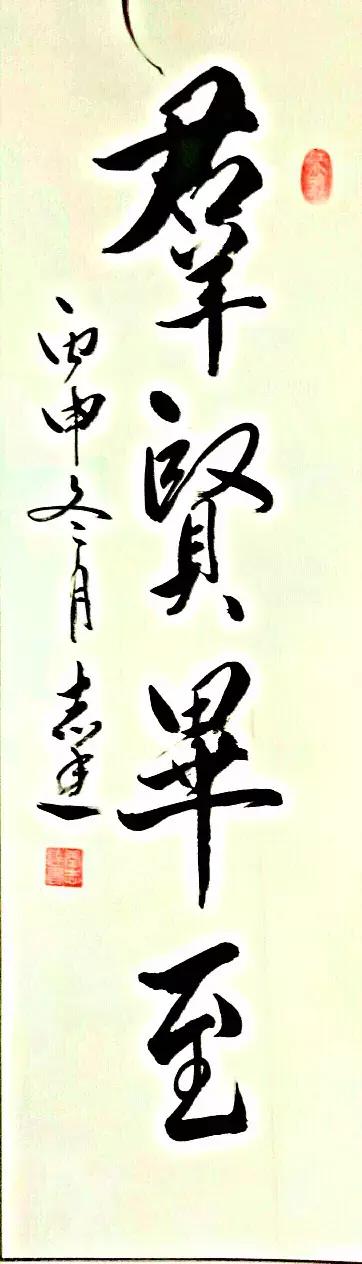 羣賢畢至
丙申冬月志